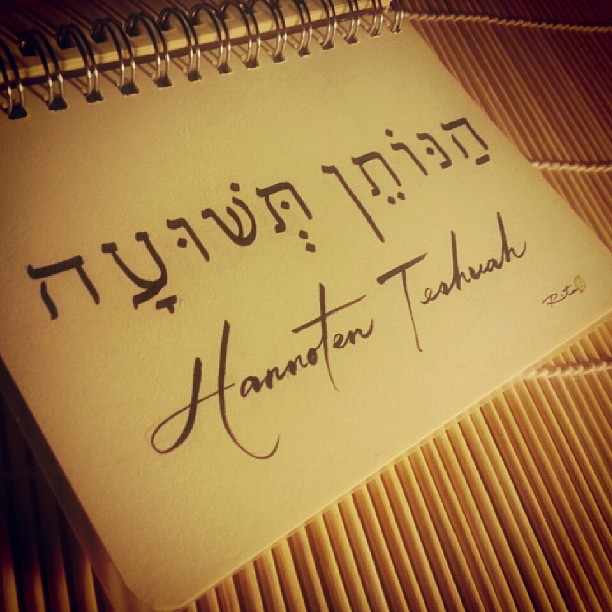 הַנּוֹתֵן תְּשׁוּעָה
Hannoten Teshuah
Rita